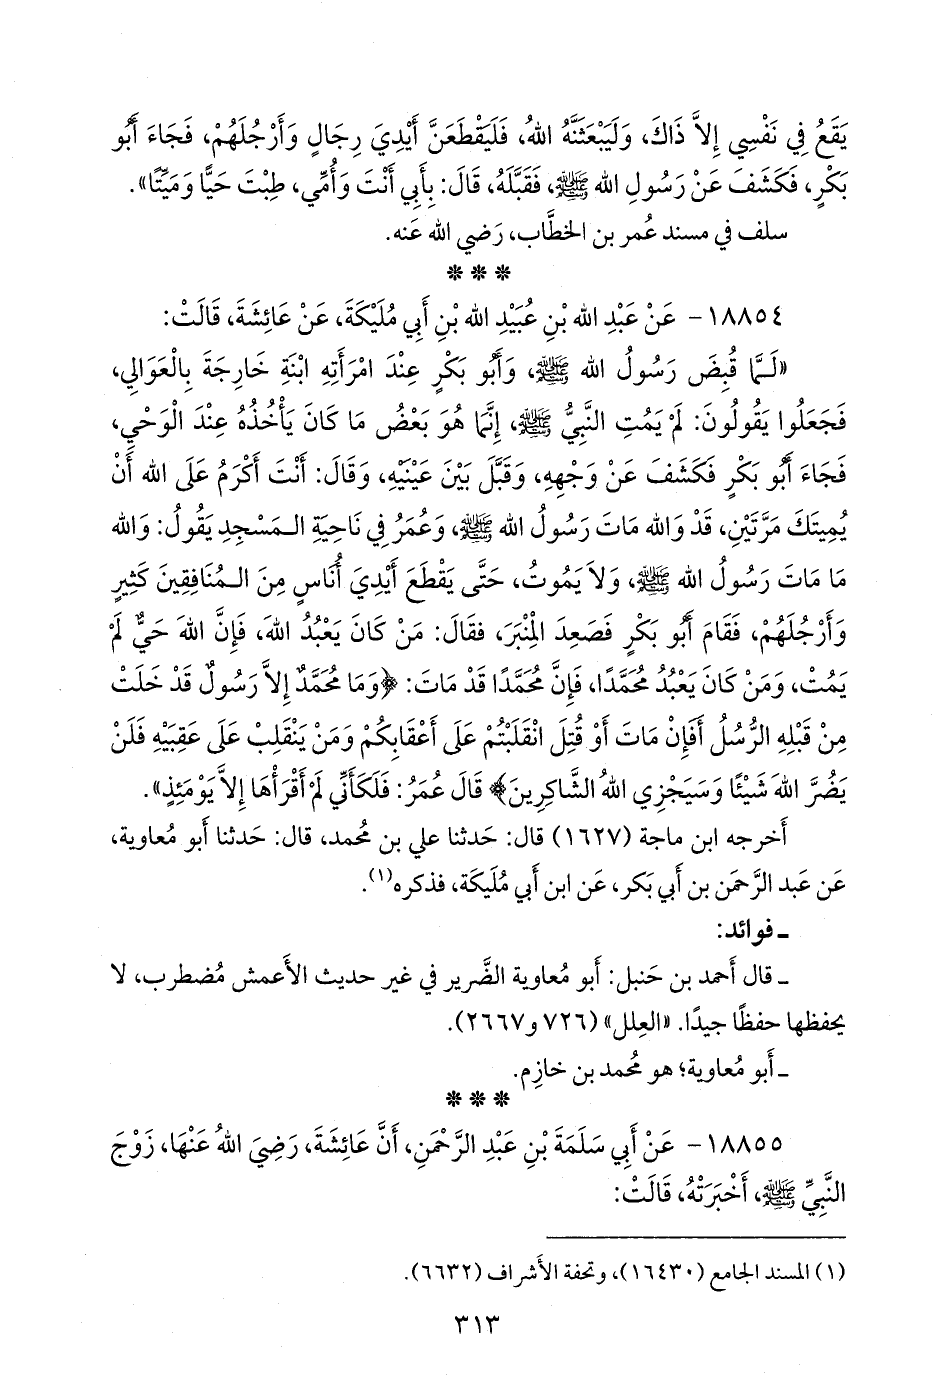 يَقَعُ فِي نَفْسِي إِلاَّ ذَاكَ، وَلَيَبْعَثَنَّهُ اللهُ، فَلَيَقْطَعَنَّ أَيْدِيَ رِجَالٍ وَأَرْجُلَهُمْ، فَجَاءَ أَبُو
بَكْرٍ، فَكَشَفَ عَنْ رَسُولِ الله ﷺ، فَقَبَّلَهُ، قَالَ: بِأَبِي أَنْتَ وَأُمِّي، طِبْتَ حَيًّا وَمَيِّتًا».
سلف في مسند عُمر بن الخطَّاب، رَضي الله عَنه.
***
١٨٨٥٤- عَنْ عَبْدِ الله بْنِ عُبَيْدِ الله بْنِ أَبِي مُلَيْكَةَ، عَنْ عَائِشَةَ، قَالَتْ:
«لَـمَّا قُبِضَ رَسُولُ الله ﷺ، وَأَبُو بَكْرٍ عِنْدَ امْرَأَتِهِ ابْنَةِ خَارِجَةَ بِالْعَوَالِي،
فَجَعَلُوا يَقُولُونَ: لَمْ يَمُتِ النَّبِيُّ ﷺ، إِنَّمَا هُوَ بَعْضُ مَا كَانَ يَأْخُذُهُ عِنْدَ الْوَحْيِ،
فَجَاءَ أَبُو بَكْرٍ فَكَشَفَ عَنْ وَجْهِهِ، وَقَبَّلَ بَيْنَ عَيْنَيْهِ، وَقَالَ: أَنْتَ أَكْرَمُ عَلَى الله أَنْ
يُمِيتَكَ مَرَّتَيْنِ، قَدْ وَالله مَاتَ رَسُولُ الله ﷺ، وَعُمَرُ فِي نَاحِيَةِ الـمَسْجِدِ يَقُولُ: وَالله
مَا مَاتَ رَسُولُ الله ﷺ، وَلاَ يَمُوتُ، حَتَّى يَقْطَعَ أَيْدِيَ أُنَاسٍ مِنَ الـمُنَافِقِينَ كَثِيرٍ
وَأَرْجُلَهُمْ، فَقَامَ أَبُو بَكْرٍ فَصَعِدَ المِنْبَرَ، فَقَالَ: مَنْ كَانَ يَعْبُدُ اللهَ، فَإِنَّ اللهَ حَيٌّ لَمْ
يَمُتْ، وَمَنْ كَانَ يَعْبُدُ مُحَمَّدًا، فَإِنَّ مُحَمَّدًا قَدْ مَاتَ: ﴿وَمَا مُحَمَّدٌ إِلاَّ رَسُولٌ قَدْ خَلَتْ
مِنْ قَبْلِهِ الرُّسُلُ أَفَإِنْ مَاتَ أَوْ قُتِلَ انْقَلَبْتُمْ عَلَى أَعْقَابِكُمْ وَمَنْ يَنْقَلِبْ عَلَى عَقِبَيْهِ فَلَنْ
يَضُرَّ اللهَ شَيْئًا وَسَيَجْزِي اللهُ الشَّاكِرِينَ﴾ قَالَ عُمَرُ: فَلَكَأَنِّي لَمْ أَقْرَأْهَا إِلاَّ يَوْمَئِذٍ».
أَخرجه ابن ماجة (١٦٢٧) قال: حَدثنا علي بن مُحمد، قال: حَدثنا أَبو مُعاوية،
عَن عَبد الرَّحمَن بن أَبي بَكر، عَن ابن أَبي مُلَيكة، فذكره(١).
ـ فوائد:
ـ قال أَحمد بن حَنبل: أَبو مُعاوية الضَّرير في غير حديث الأَعمش مُضطرب، لا
يحفظها حفظًا جيدًا. «العِلل» (٧٢٦ و٢٦٦٧).
ـ أَبو مُعاوية؛ هو مُحمد بن خازِم.
***
١٨٨٥٥- عَنْ أَبِي سَلَمَةَ بْنِ عَبْدِ الرَّحْمَنِ، أَنَّ عَائِشَةَ، رَضِيَ اللهُ عَنْهَا، زَوْجَ
النَّبِيِّ ﷺ، أَخْبَرَتْهُ، قَالَتْ:
(١) المسند الجامع (١٦٤٣٠)، وتحفة الأَشراف (٦٦٣٢).
٣١٣